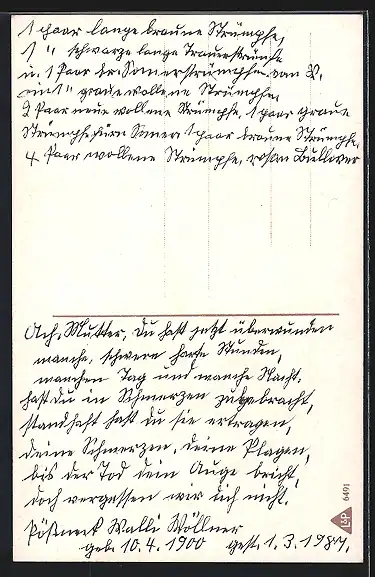 1 paar lange braune Strümpfe,
1 " schwarze lange Trauerstrümpfe
u. 1 Paar br. Somerstrümpfe. von
" grade wollene Strümpfe,
2 Paar neue wollene Strümpfe, 1 paar graue
Strümpfe fürn Somer 1 paar braune Strümpfe,
4 Paar wollene Strümpfe, rosan Bullower
Ach, Mutter, du hast jetzt überwunden
manche, schwere harte Stunden,
manchen Tag und manche Nacht,
hast du in Schmerzen zugebracht,
standhaft hast du sie ertragen,
deine Schmerzen, deine Plagen,
bis der Tod dein Auge bricht,
doch vergessen wir dich nicht.
Pößneck Walli Wöllner
geb. 10.4.1900 gest. 1.3.1987.
L&P 6491